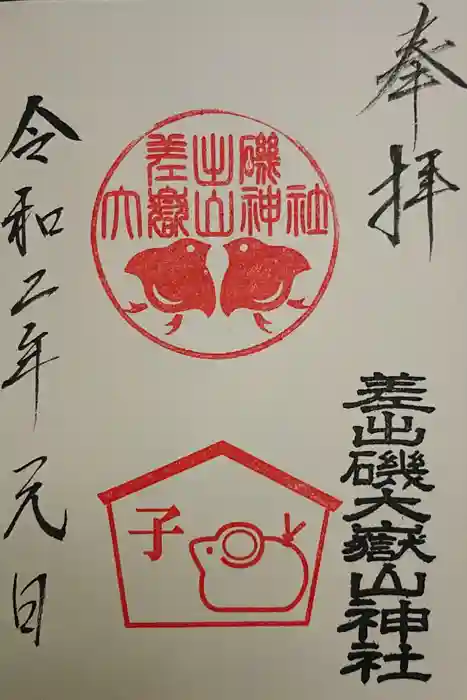 奉拝
差出磯大嶽山神社
差出磯
大嶽山神社
子
令和二年元日